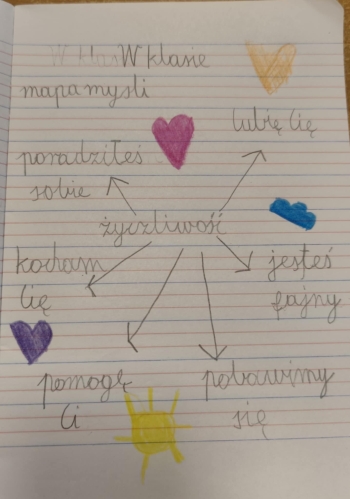 W klasie
mapa myśli
lubię Cię
poradziłeś
sobie
życzliwość
kocham
Cię
jesteś
fajny
pomogę
Ci
pobawimy
się